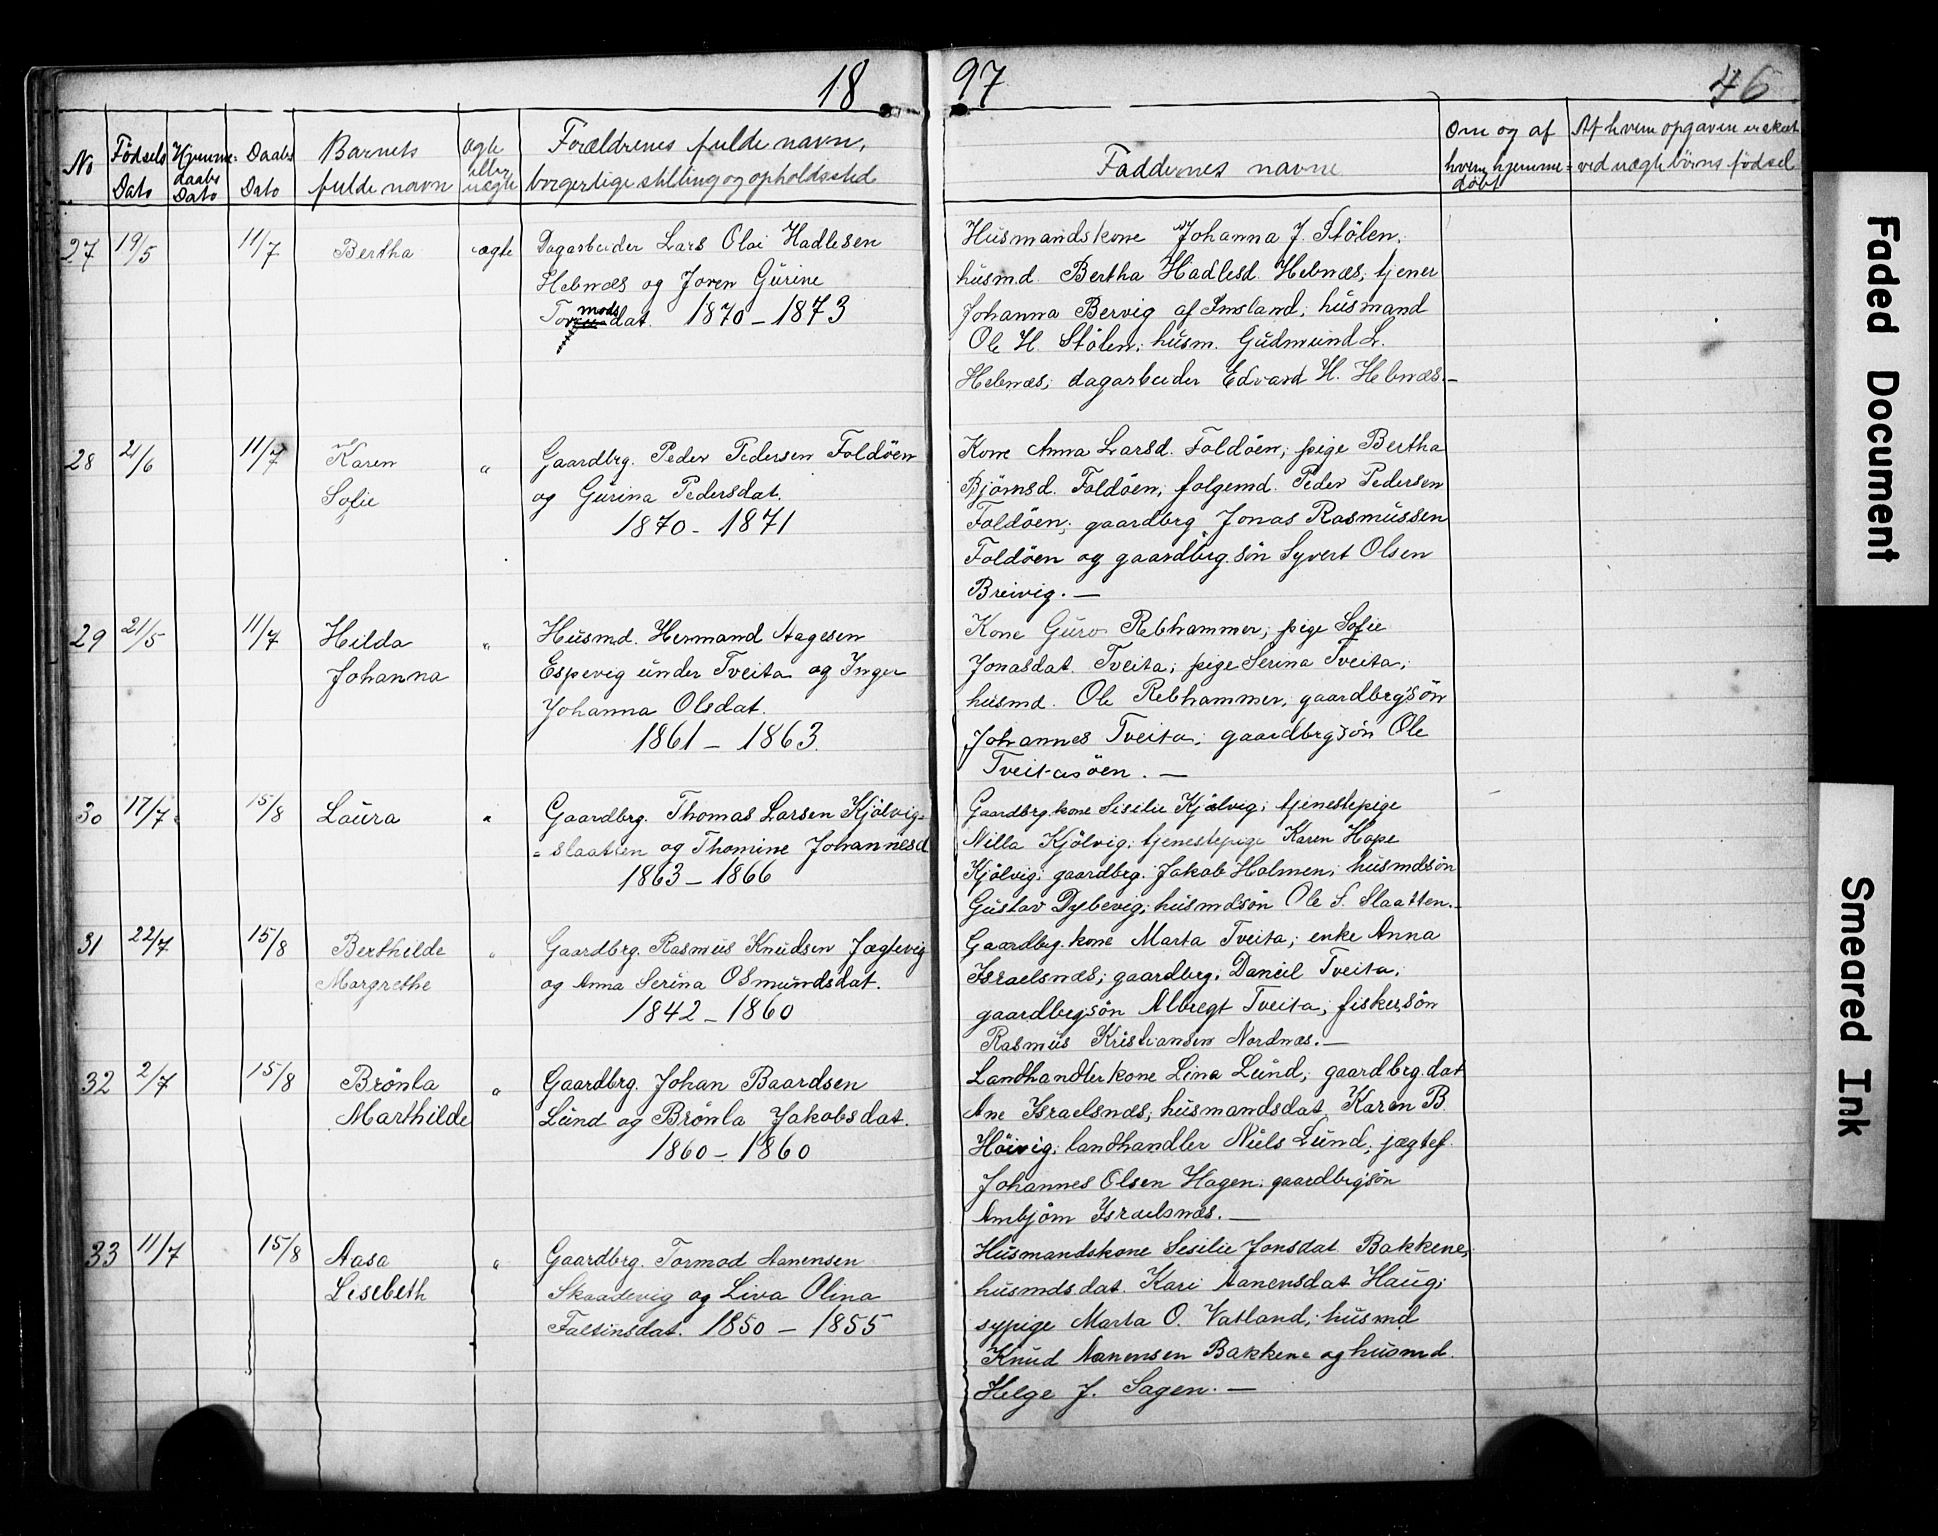 18 97 46
No
Fødsels Dato
Hjemme= daabs Dato
Daabs Dato
Barnets fulde navn
ægte eller uægte
Forældrenes fulde navn,
borgerlige stilling og opholdssted
Faddernes navne
Om og af hvem hjemme= døbt
Af hvem opgaven er skeet
ved uægte börns födsel
27 19/5 11/7 Bertha ægte
Dagarbeider Lars Olai Hadlesen
Hebnæs og Joren Gurine
Tormodsdat. 1870 - 1873
Husmandskone Johanna J. Stölen;
husmd. Bertha Hadlesd. Hebnæs; tjener
Johanna Bervig af Imsland; husmand
Ole H. Stölen; husm. Gudmund L.
Hebnæs; dagarbeider Edvard H. Hebnæs. —
28 21/6 11/7 Karen Sofie "
Gaardbrg. Peder Pedersen Foldöen
og Gurina Pedersdat.
1870 - 1871
Kone Anna Larsd. Foldöen; pige Bertha
Björnsd. Foldöen; folgemd. Peder Pedersen
Foldöen; gaardbrg Jonas Rasmussen
Foldöen og gaardbrg.sön Syvert Olsen
Breivig. —
29 21/5 11/7 Hilda Johanna "
Husmd. Hermand Aagesen
Espevig under Tveita og Inger
Johanna Olsdat.
1861 - 1863.
Kone Guro Rebhammer; pige Sofie
Jonasdat. Tveita; pige Serina Tveita;
husmd. Ole Rebhammer; gaardbrgsön
Johannes Tveita; gaardbrgsön Ole
Tveitasöen. —
30 17/7 15/8 Laura "
Gaardbrg. Thomas Larsen Kjölvig=
=slaatten og Thomine Johannesd
1863 - 1866
Gaardbrg.kone Sisilie Kjölvig; tjenestepige
Nilla Kjölvig; tjenestepige Karen Hope
Kjölvig; gaardbrg. Jakob Holmen; husmdsön
Gustav Dybevig; husmdsön Ole S. Slaatten. -
31 22/7 15/8 Berthilde Margrethe "
Gaardbrg. Rasmus Knudsen Jægtevig
og Anna Serina Osmundsdat.
1842 - 1860
Gaardbrg.kone Marta Tveita; enke Anna
Israelsnæs; gaardbrg. Daniel Tveita;
gaardbrgsön Albregt Tveita; fiskersön
Rasmus Kristiansen Nordnæs. —
32 2/7 15/8 Brönla Marthilde "
Gaardbrg. Johan Baardsen
Lund og Brönla Jakobsdat.
1860 - 1860
Landhandlerkone Lina Lund; gaardbrg.dat
Ane Israelsnæs; husmandsdat. Karen B.
Höivig; landhandler Niels Lund; jægtef.
Johannes Olsen Hagen; gaardbrgsön
Ambjörn Israelsnæs. —
33 11/7 15/8 Aasa Lisebeth "
Gaardbrg. Tormod Aanensen
Skaadevig og Liva Olina
Faltinsdat. 1850 - 1855
Husmandskone Sesilie Jonsdat. Bakkene;
husmds.dat. Kari Aanensdat Haug;
sypige Marta O. Vatland; husmd
Knud Aanensen Bakkene og husmd.
Helge J. Sagen. —
Faded Document
Smeared Ink